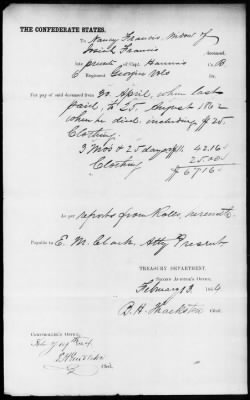 THE CONFEDERATE STATES.
To Nancy Francis, widow of
Francis deceased,
late private of Capt. Co. B
Regiment Georgia Vols Dr.
For pay of said deceased from 30 April, when last
paid, to 25 August 1862
when he died including $25
Clothing.
3 Mos & 25 days @ 11. 42.16
Clothing 25.00
$67.16
As per reports from Rolls, herewith
Payable to E. M. Clark, Atty Present
TREASURY DEPARTMENT,
SECOND AUDITOR'S OFFICE,
February 13, 1864
B. H. Thackston Clerk.
COMPTROLLER'S OFFICE,
Feb 1864
Clerk.